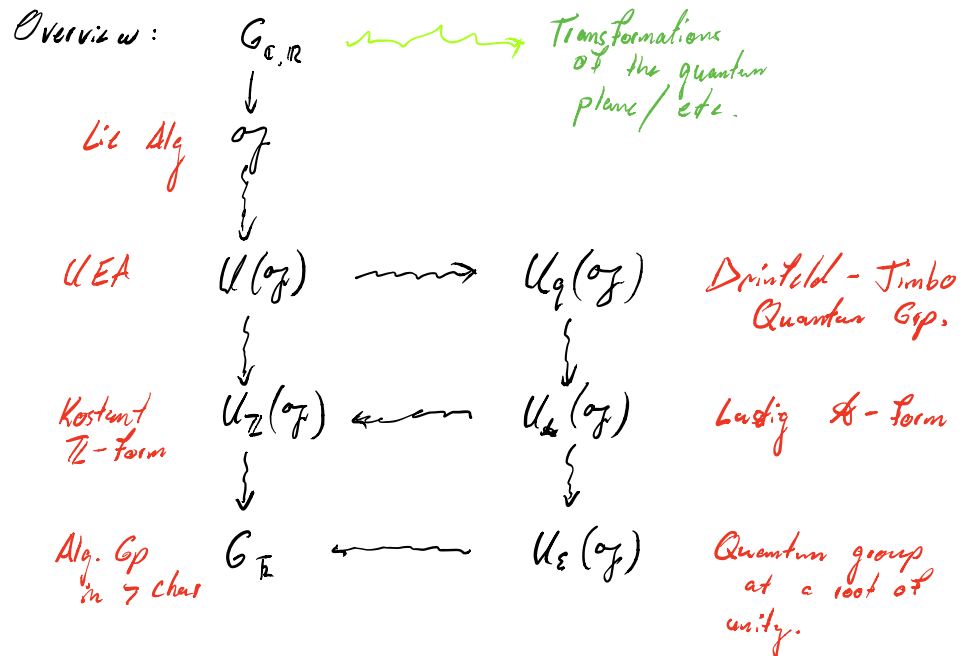 Overview:
G_{ℂ,ℝ}
Transformations
of the quantum
plane/etc.
Lie Alg
𝔤
UEA
U(𝔤)
U_q(𝔤)
Drinfeld-Jimbo
Quantum Grp.
Kostant
ℤ-form
U_ℤ(𝔤)
U_𝒜(𝔤)
Lustig 𝒜-form
Alg. Gp
in > char
G_{\overline{k}}
U_ε(𝔤)
Quantum group
at a root of
unity.